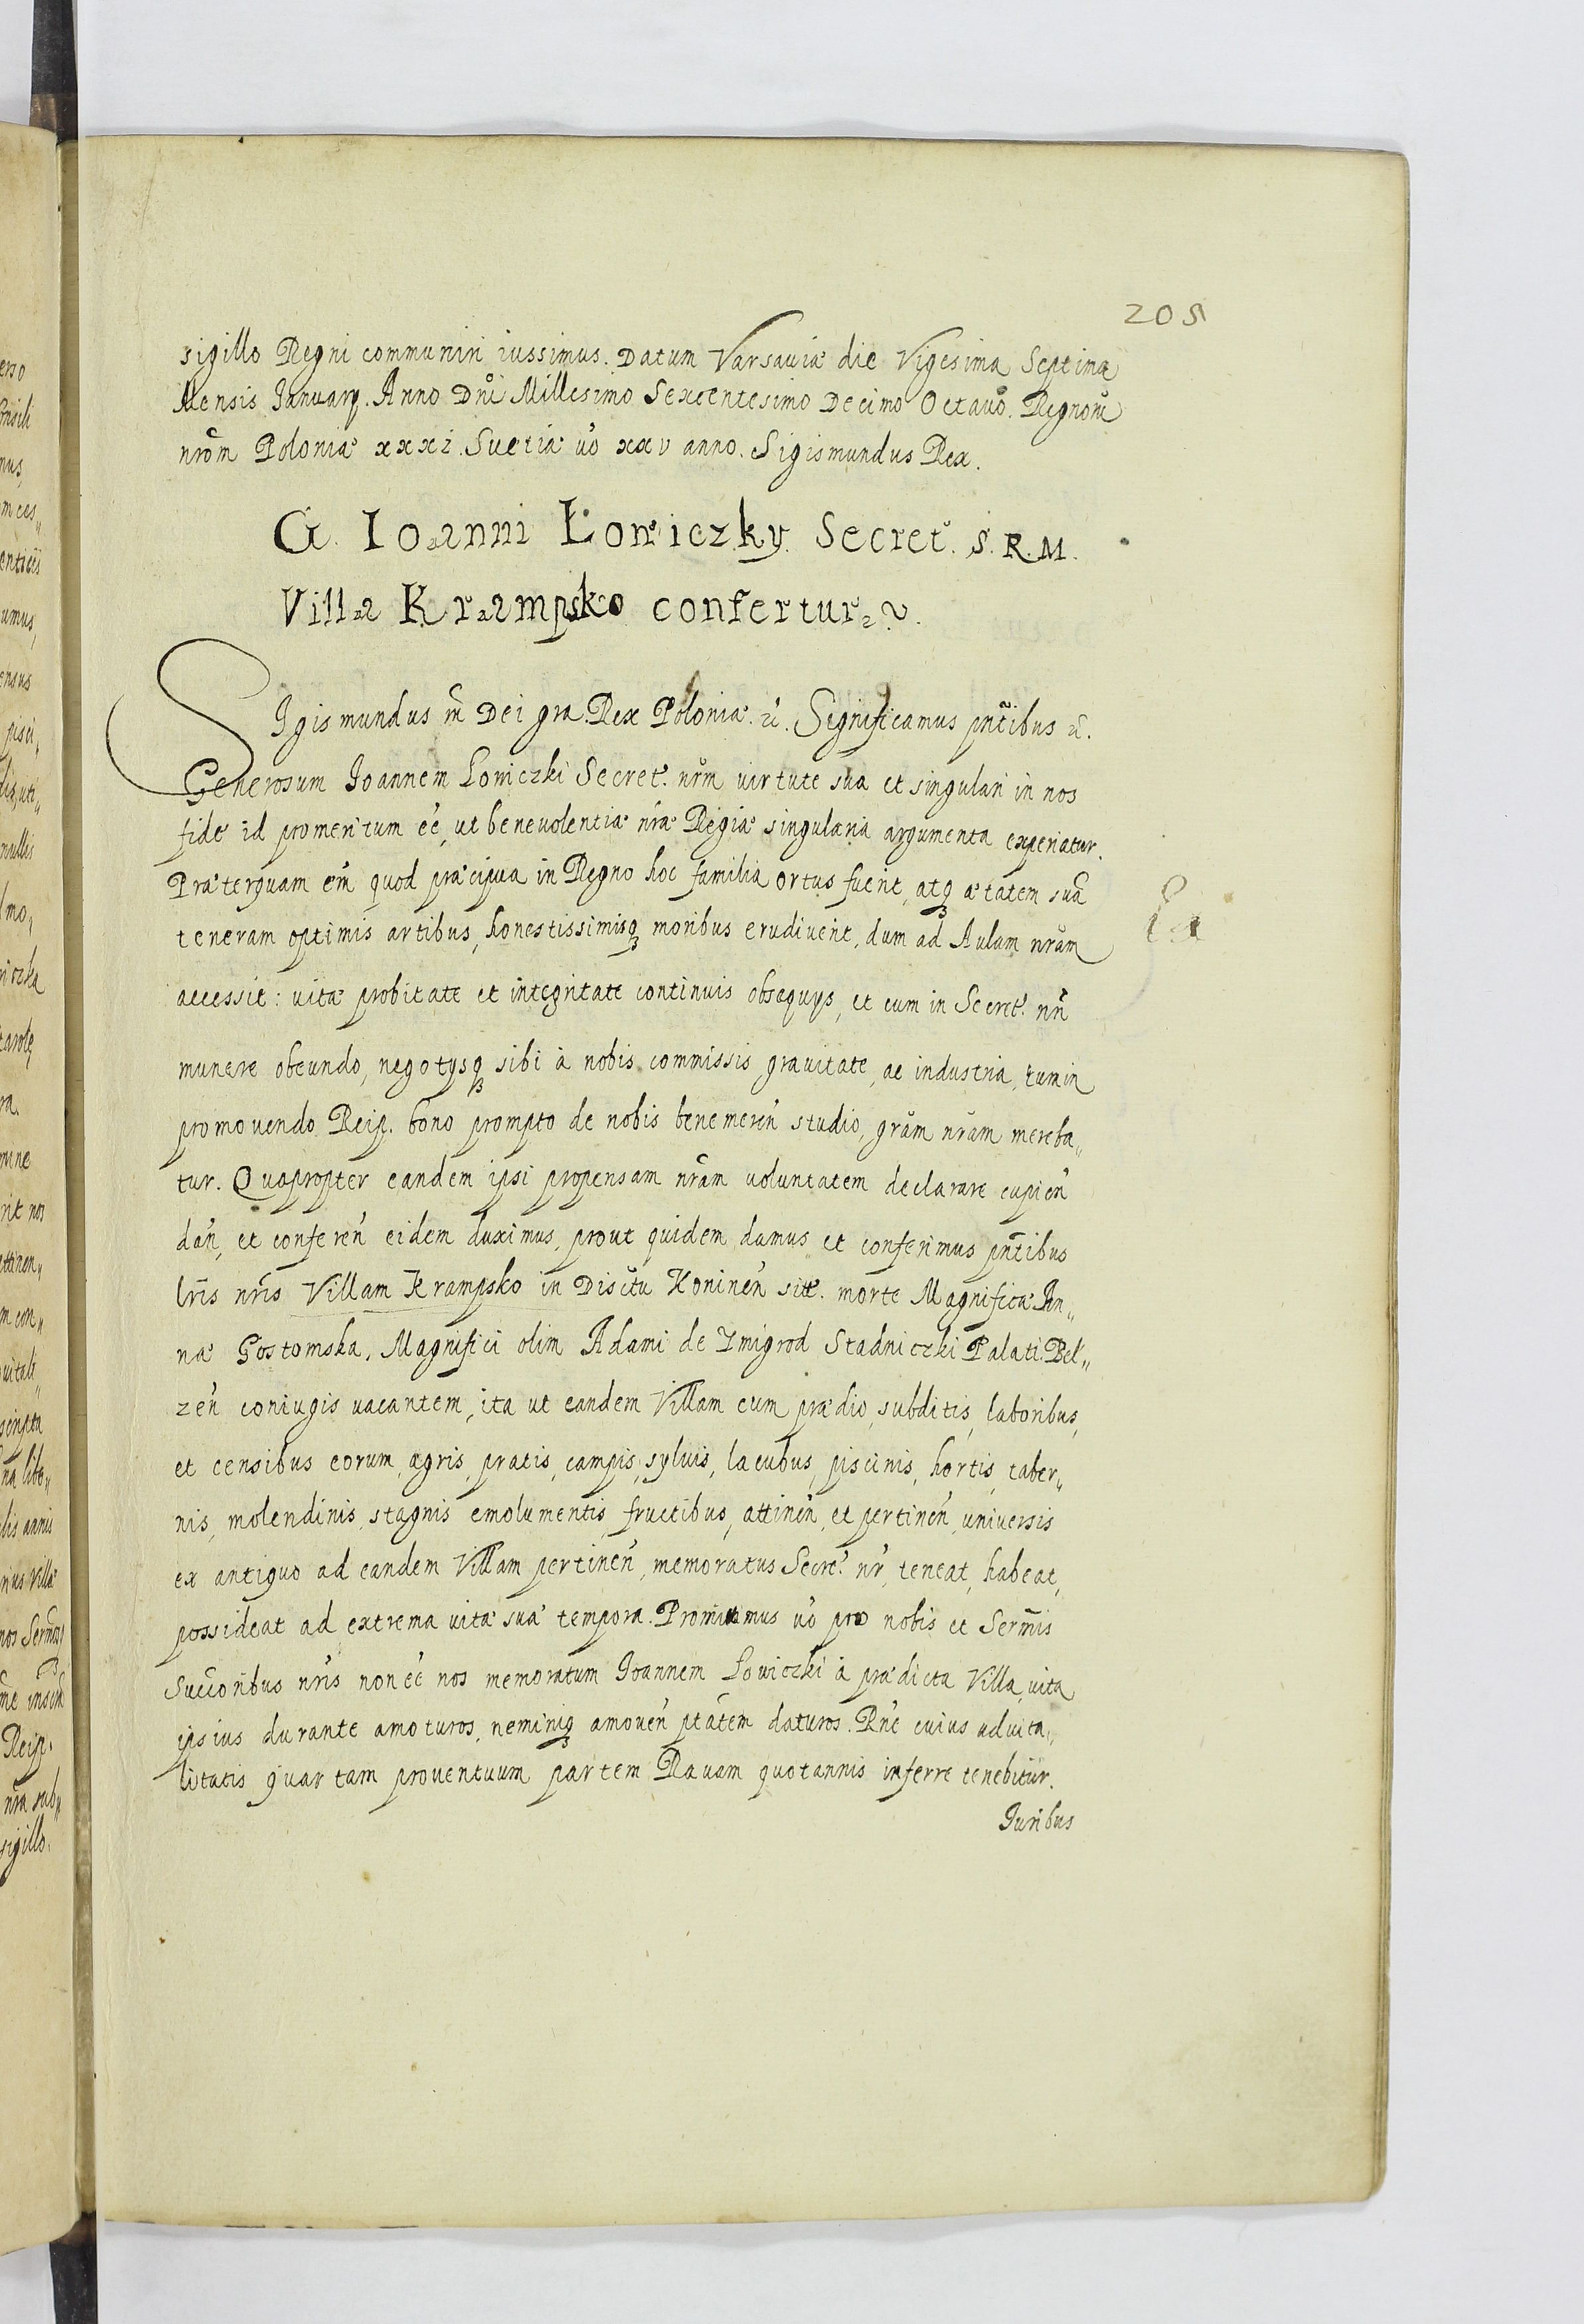 205
sigillo Regni communiri iussimus. Datum Varsaviæ die Vigesima Septima
Mensis Januarij. Anno Dni Millesimo Sexcentesimo Decimo Octauo. Regnorũ
nrõm Poloniæ xxxi. Suetiæ ũo xxv anno. Sigismundus Rex.
G. Ioanni Łowiczky Secret. S. R. M.
Villa Krampsko confertur.
SIgismundus III Dei gra. Rex Poloniæ. Significamus pntibus
Generosum Joannem Lowiczki Secret. nr̃m virtute sua et singulari in nos
fide id promeritum ẽe, ut beneuolentiæ nr̃æ Regiæ singularia argumenta experiatur.
Præterquam em̃ quod præcipua in Regno hoc familia ortus fuerit, atq ætatem suã
teneram optimis artibus, honestissimisq moribus erudiuerit, dum ad Aulam nrãm
accessit: uitæ probitate et integritate continuis obsequys, et cum in Secret. nrĩ
munere obeundo, negotysq sibi à nobis commissis grauitate, ac industria, tum in
promouendo Reip. bono prompto de nobis benemeren̄ studio, grãm nrãm mereba„
tur. Quapropter eandem ipsi propensam nrãm uoluntatem declarare cupien̄
dan̄, et conferen̄ eidem duximus, prout quidem damus et conferimus pñtibus
lr̃is nr̃is Villam Krampsko in Disctũ Koninen̄ sit. morte Magnificæ An„
næ Gostomska, Magnifici olim Adami de Zmigrod Stadniczki Palati. Bel„
zen̄ coniugis uacantem, ita ut eandem Villam cum prædio, subditis, laboribus,
et censibus eorum, agris, pratis, campis, syluis, lacubus, piscinis, hortis, taber„
nis, molendinis, stagnis emolumentis, fructibus, attinen̄, et pertinen̄, uniuersis
ex antiquo ad eandem Villam pertinen̄, memoratus Secret. nr̃, teneat, habeat,
possideat ad extrema uitæ suæ tempora. Promittimus ũo pro nobis et Serm̃is
Succoribus nr̃is non ẽe nos memoratum Joannem Lowiczki à prædicta Villa, uita
ipsius durante amoturos, neminiq amouen̄ ptãtem daturos. Rñe cuius aduita„
litatis quartam prouentuum partem Rauam quotannis inferre tenebitur.
Juribus